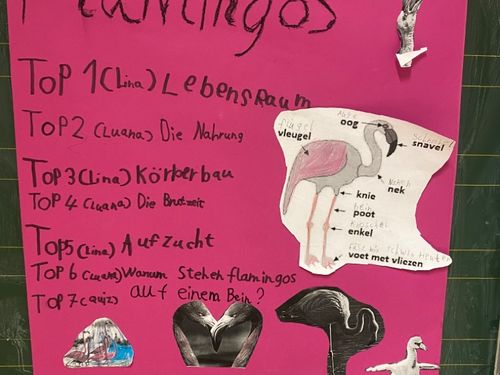 Flamingos
Top 1 (Lina) Lebensraum
Top 2 (Luana) Die Nahrung
Top 3 (Lina) Körberbau
Top 4 (Luana) Die Brutzeit
Top 5 (Lina) Aufzucht
Top 6 (Luana) Warum stehen flamingos
auf einem Bein?
Top 7 (Quiz)
Auge
oog
flügel
vleugel
snavel
nek
knie
bein
poot
enkel
voet met vliezen